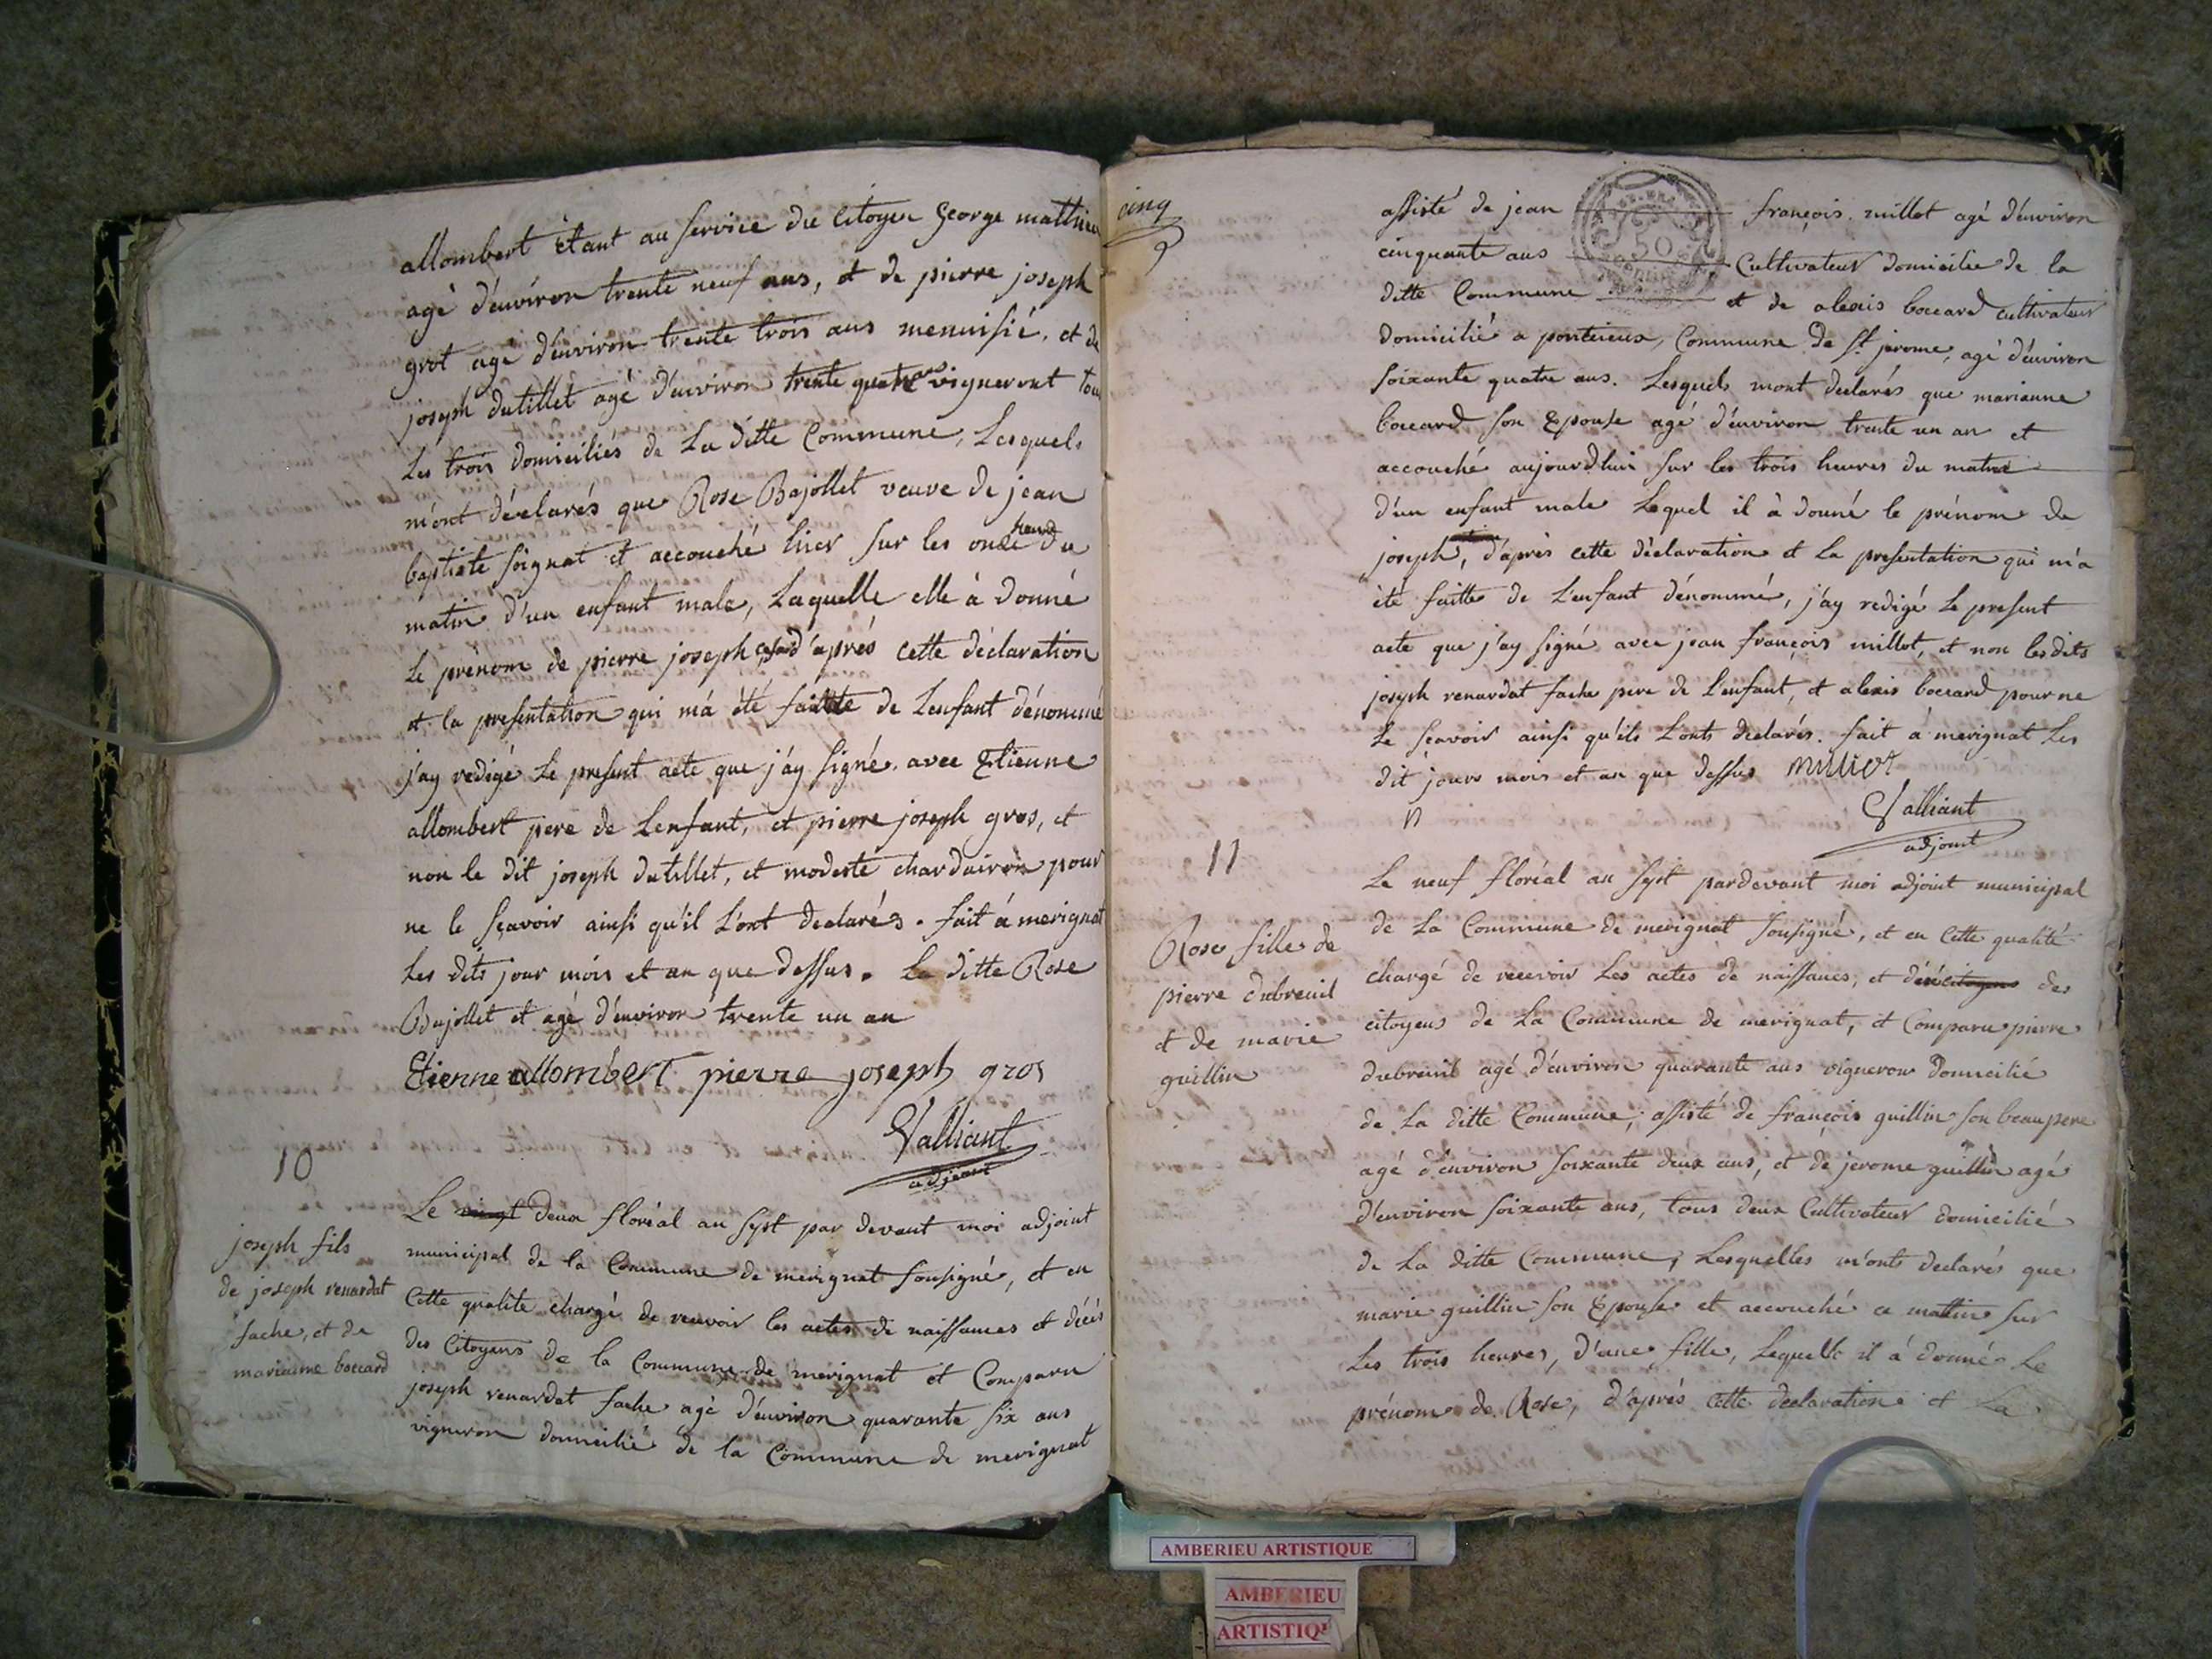 allombert étant au service du Citoyen George mathieu
agé d'environ trente neuf ans, et de pierre joseph
grot agé d'environ trente trois ans menuisié, et de
joseph dutillet agé d'environ trente quatre ans vigneront tous
les trois domiciliés de La ditte Commune, Lesquels
m'ont déclarés que Rose Bajollet veuve de jean
baptiste soignat et accouché hier sur les onze heures du
matin d'un enfant male, Laquelle elle à donné
le prénom de pierre joseph d'aprés cette déclaration
et la presentation qui m'a été faitte de L'enfant dénommé
j'ay redigé le present acte que j'ay signé avec Etienne
allombert pere de Lenfant, et pierre joseph gros, et
non le dit joseph dutillet, et modeste chardairon pour
ne le sçavoir ainsi qu'il L'ont declarés. fait á merignat
Les dits jour mois et an que dessus. La ditte Rose
Bajollet et agé d'environ trente un an
Etienne allombert pierre joseph gros
Valliant
adjoint
10
joseph fils
de joseph renardat
fache, et de
marianne boccard
Le vingt deux floréal an sept par devant moi adjoint
municipal de la Commune de merignat sousigné, et en
Cette qualite chargé de recevoir les actes de naissances et décés
des Citoyens de la Commune de merignat et Comparu
joseph renardat fache agé d'environ quarante six ans
vigneron domicilié de la Commune de merignat
cinq
assisté de jean françois millet agé d'environ
cinquante ans Cultivateur domicilié de la
ditte Commune et de alexis boccard cultivateur
50
domicilié a pontieux, Commune de St jerome, agé d'environ
soixante quatre ans. Lesquels mont declarés que marianne
boccard son Epouse agé d'environ trente un an et
accouché aujourdhui sur les trois heures du matin
d'un enfant male Lequel il à donné le prénom de
joseph, d'aprés cette déclaration et La presentation qui m'a
été faitte de L'enfant dénommé, j'ay redigé Le present
acte que j'ay signé avec jean françois millot, et non lesdits
joseph renardat fache pere de L'enfant, et alexis boccard pour ne
le sçavoir ainsi qu'ils L'onts declarés. fait à merignat Les
dit jours mois et an que dessus Millot
Valliant
adjoint
11
Rose fille de
pierre dubreuil
et de marie
guillin
Le neuf floréal an sept pardevant moi adjoint municipal
de La Commune de merignat sousigné, et en Cette qualité
chargé de recevoir Les actes de naissances, et des
citoyens de La Commune de merignat, et Comparu pierre
dubreuil agé d'environ quarante ans vigneron domicilié
de La ditte Commune, assisté de françois guillin son beau pere
agé d'environ soixante deux ans, et de jerome guillin agé
d'environ soixante ans, tous deux Cultivateur domicilié
de La ditte Commune, Lesquelles m'onts declarés que
marie guillin son Epouse et accouché ce mattin sur
Les trois heures, d'une fille, Lequelle il á donné Le
prénom de Rose, d'aprés cette declaration et La
AMBERIEU ARTISTIQUE
AMBERIEU
ARTISTIQ